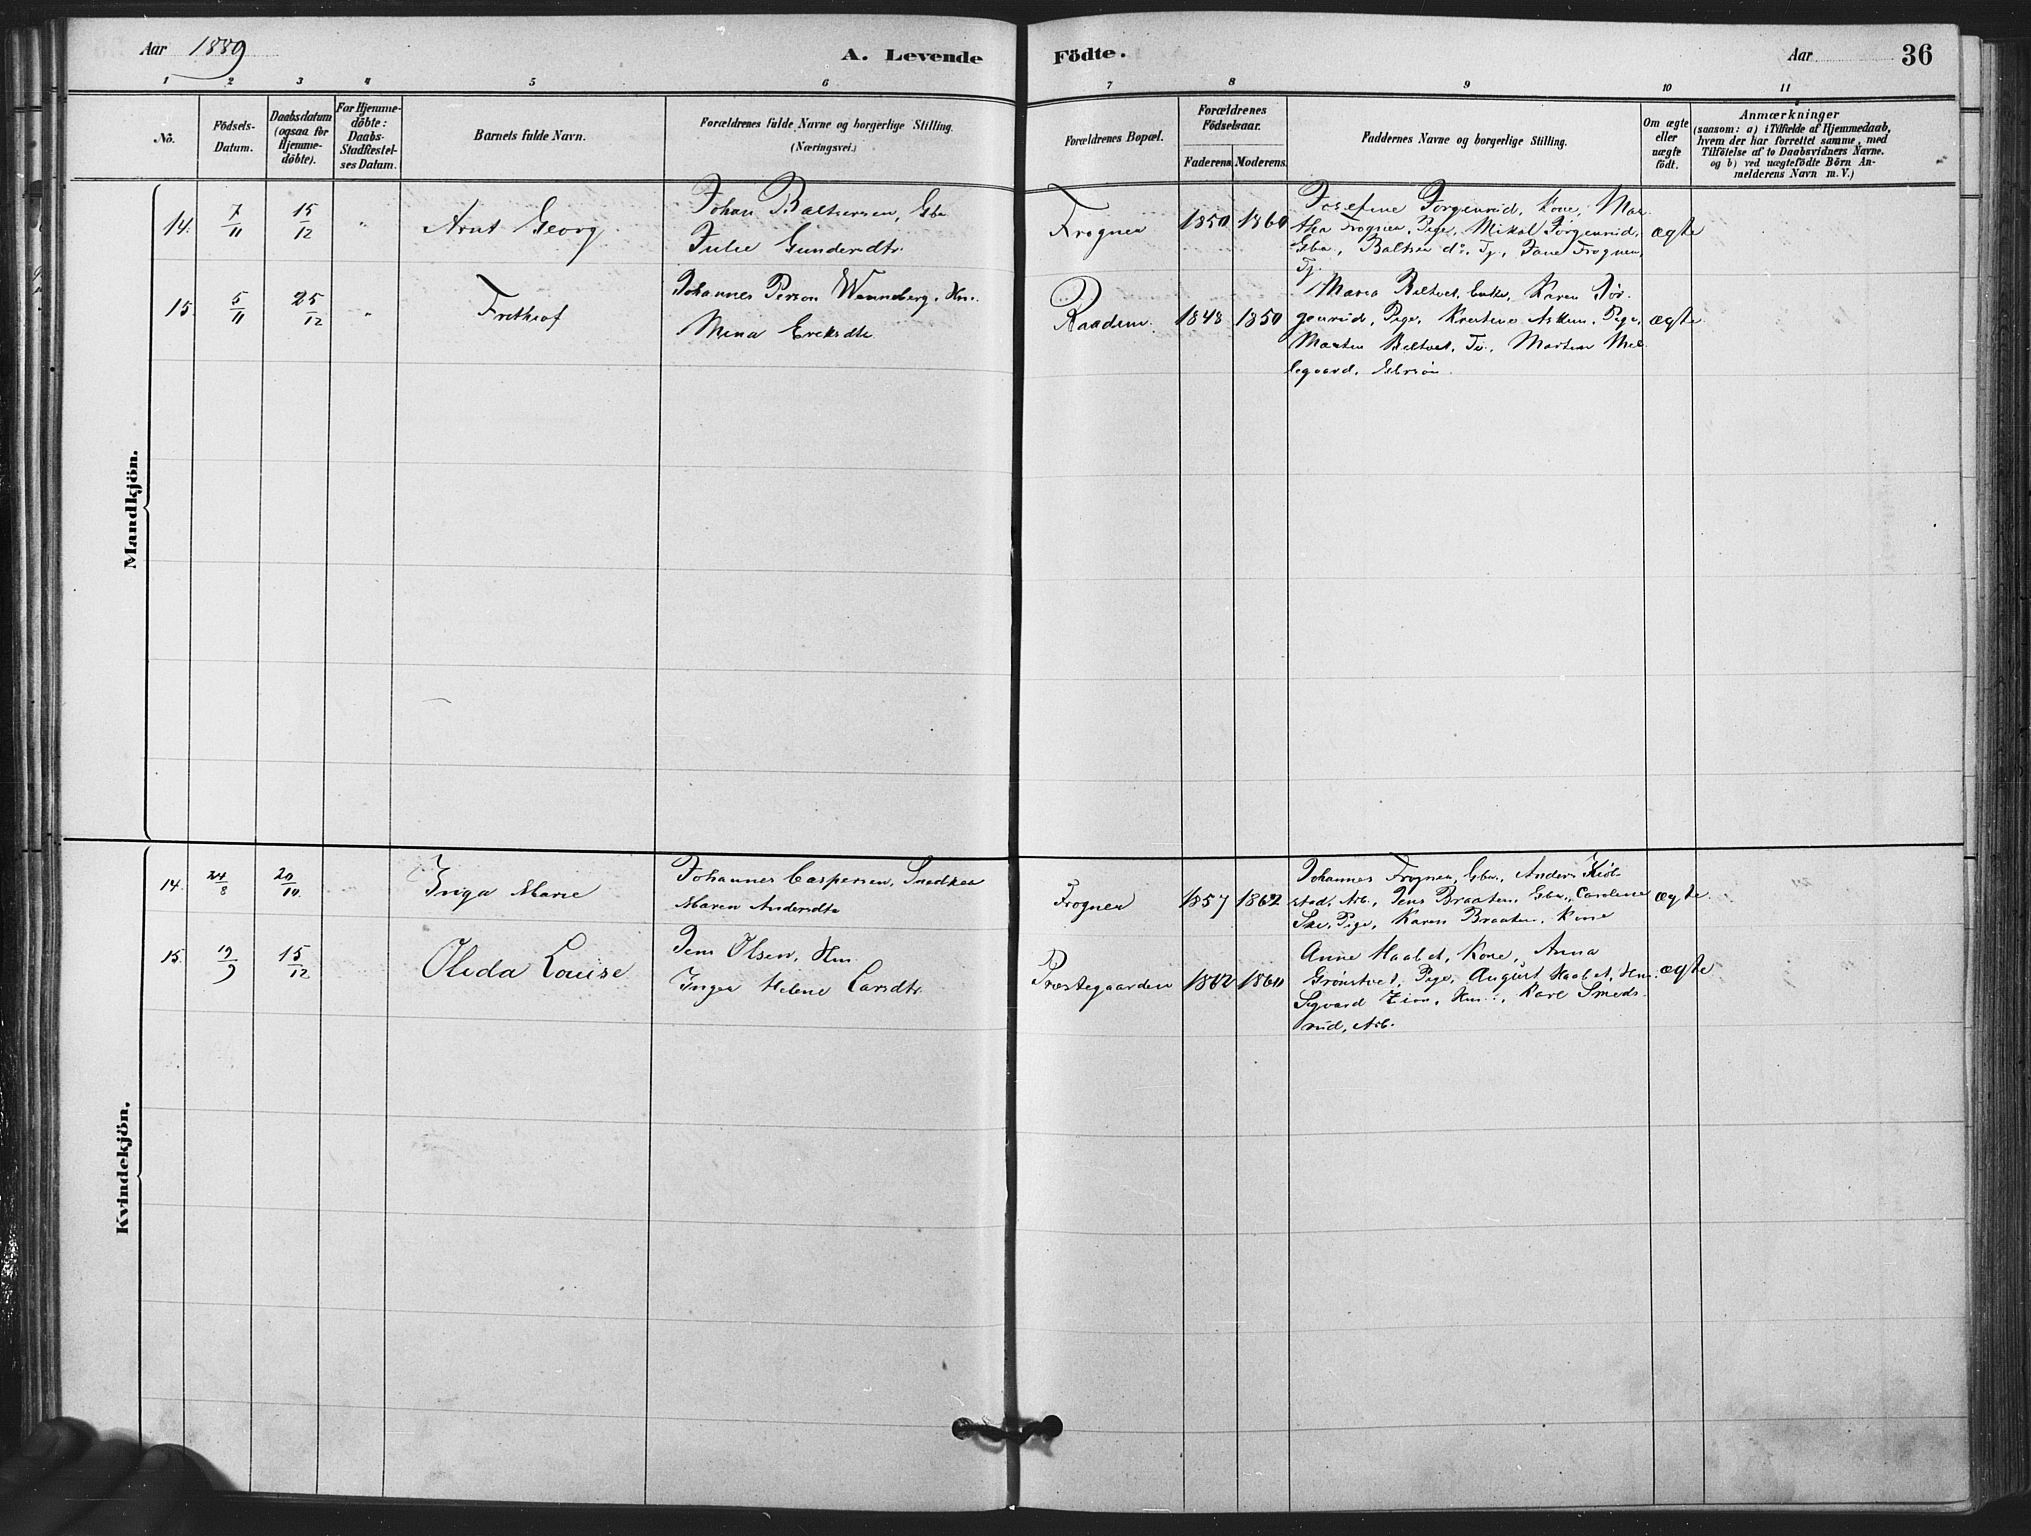 Aar 1889
A. Levende
Födte.
Aar
36
1 2 3 4 5 6 7 8 9 10 11
No.
Födsels-
Datum.
Daabsdatum
(ogsaa for
Hjemme-
döbte).
For Hjemme-
döbte:
Daabs-
Stadfæstel-
ses Datum.
Barnets fulde Navn.
Forældrenes fulde Navne og borgerlige Stilling.
(Næringsvei.)
Forældrenes Bopæl.
Forældrenes
Födselsaar.
Faderens.
Moderens.
Faddernes Navne og borgerlige Stilling.
Om ægte
eller
uægte
födt.
Anmærkninger
(saasom: a) i Tilfælde af Hjemmedaab,
hvem der har forrettet samme, med
Tilföielse af to Daabsvidners Navne.
og b) ved uægtefödte Börn An-
melderens Navn m. V.)
Mandkjön.
14. 7/11 15/12 " Arnt Georg
Johan Baltsersen, Gbr.
Julie Gundersdtr.
Frogner 1850 1860
Josefine Jorgenrud, Kone, Mar-
tha Frogner, Pige, Mikal Jorgenrud,
Gbr., Baltser do., Tj., Jane Frogner,
Tj.
ægte
15. 5/11 25/12 " Frithiof
Johannes Person Wenneberg, Hm.
Mina Eriksdtr.
Raaden. 1848 1850
Maria Biltvet, Enke, Karen Jör-
genrud, Pige, Kristine Asken, Pige,
Martin Biltvet, Tj., Martin Mel-
legaard, Gbrsön.
ægte
Kvindekjön.
14. 24/8 20/10. Inga Marie
Johannes Caspersen, Snedker
Maren Andersdtr
Frogner 1857 1862
Johannes Frogner, Gbr., Anders Kiöl-
stad, Arb., Jens Braaten, Gbr., Caroline
Ske, Pige, Karen Braaten, Kone
ægte
15. 19/9 15/12 Oleda Louise
Jens Olsen, Hm.
Inger Helene Larsdtr.
Præstegaarden 1862 1860
Anne Haabet, Kone, Anna
Grönstvet, Pige, August Haabet, Hm.
Sigvard Zion, Hm., Karl Smeds-
rud, Arb.
ægte